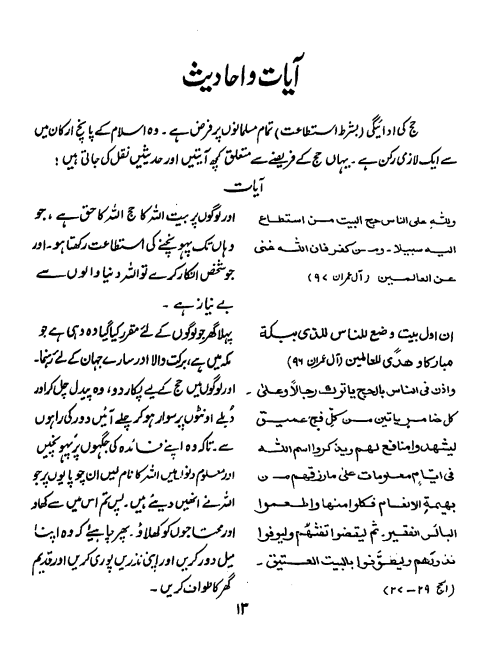 آیات و احادیث
حج کی ادائیگی (بشرط استطاعت) تمام مسلمانوں پر فرض ہے۔ وہ اسلام کے پانچ ارکان میں
سے ایک لازمی رکن ہے۔ یہاں حج کے فریضے سے متعلق کچھ آیتیں اور حدیثیں نقل کی جاتی ہیں:
آیات
وللہ علی الناس حج البیت من استطاع
الیہ سبیلا۔ ومن کفر فان اللہ غنی
عن العالمین (آل عمران ۹۷)
اور لوگوں پر بیت اللہ کا حج اللہ کا حق ہے، جو
وہاں تک پہونچنے کی استطاعت رکھتا ہو۔ اور
جو شخص انکار کرے تو اللہ دنیا والوں سے
بے نیاز ہے۔
ان اول بیت وضع للناس للذی ببکة
مبارکا وھدًی للعالمین (آل عمران ۹۶)
پہلا گھر جو لوگوں کے لئے مقرر کیا گیا وہ وہی ہے جو
مکہ میں ہے، برکت والا اور سارے جہان کے لئے رہنما۔
واذن فی الناس بالحج یاتوک رجالاً وعلی۔
کل ضامر یاتین من کل فج عمیق
لیشھدوا منافع لھم ویذکروا اسم اللہ
فی ایام معلومات علی مارزقھم من
بھیمة الانعام فکلوا منھا واطعموا
البائس الفقیر۔ ثم لیقضوا تفثھم ولیوفوا
نذورھم ولیطوّفوا بالبیت العتیق۔
(الحج ۲۹–۲۷)
اور لوگوں میں حج کے لیے پکار دو، وہ پیدل چل کر اور
دبلے اونٹوں پر سوار ہو کر چلے آئیں دور کی راہوں
سے۔ تاکہ وہ اپنے فائدہ کی جگہوں پر پہونچیں
اور معلوم دنوں میں اللہ کا نام لیں ان چوپایوں پر جو
اللہ نے انھیں دیئے ہیں۔ پس تم اس میں سے کھاؤ
اور محتاجوں کو کھلاؤ۔ پھر چاہیئے کہ وہ اپنا
میل دور کریں اور اپنی نذریں پوری کریں اور قدیم
گھر کا طواف کریں۔
۱۳